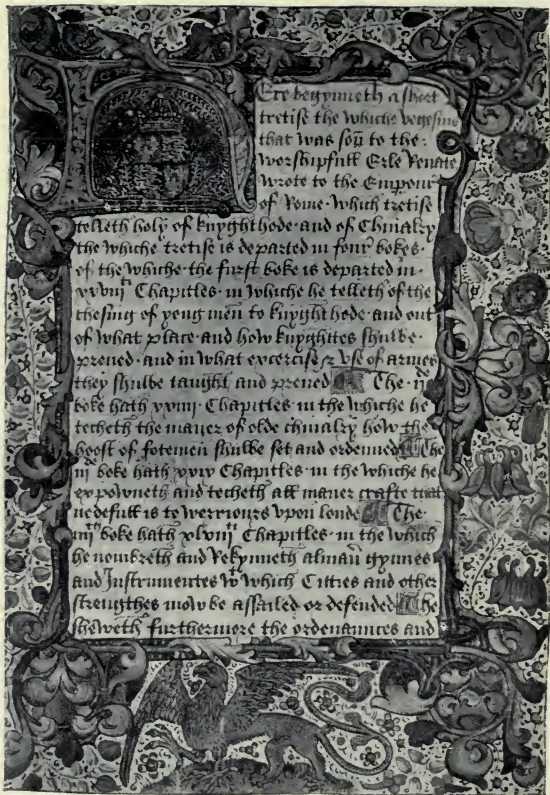 Ere begynneth a short
tretise the whiche vegesius
that was son to the
worshipfull Erle Renate
wrote to the Emperour
of Rome · which tretise
telleth holy of knyghthode · and of Chiualry
the whiche tretise is departed in four bokes ·
of the whiche · the furst boke is departed in ·
xxviij Chapitles · in whiche he telleth of the
chesing of yong men to knyghthode · and out
of what place · and how knyghttes shulbe ·
preued · and in what excercise & vse of armes
they shulbe taught and preued The · ij
boke hath xxiiij Chapitles · in the whiche he
techeth the maner of olde chiualry how the
hoost of fotemen shulbe set and ordenned The
iij boke hath xxvj Chapitles · in the whiche he
expowneth and techeth all maner crafte that
nedefull is to werriours vpon londe The ·
iiij boke hath xlviij Chapitles · in the which
he nombreth and Rekynneth alman gynnes
and Instrumentes wt which Citties and other
strengthes mow be assailed or defended The
sheweth furthermore the ordenaunces and